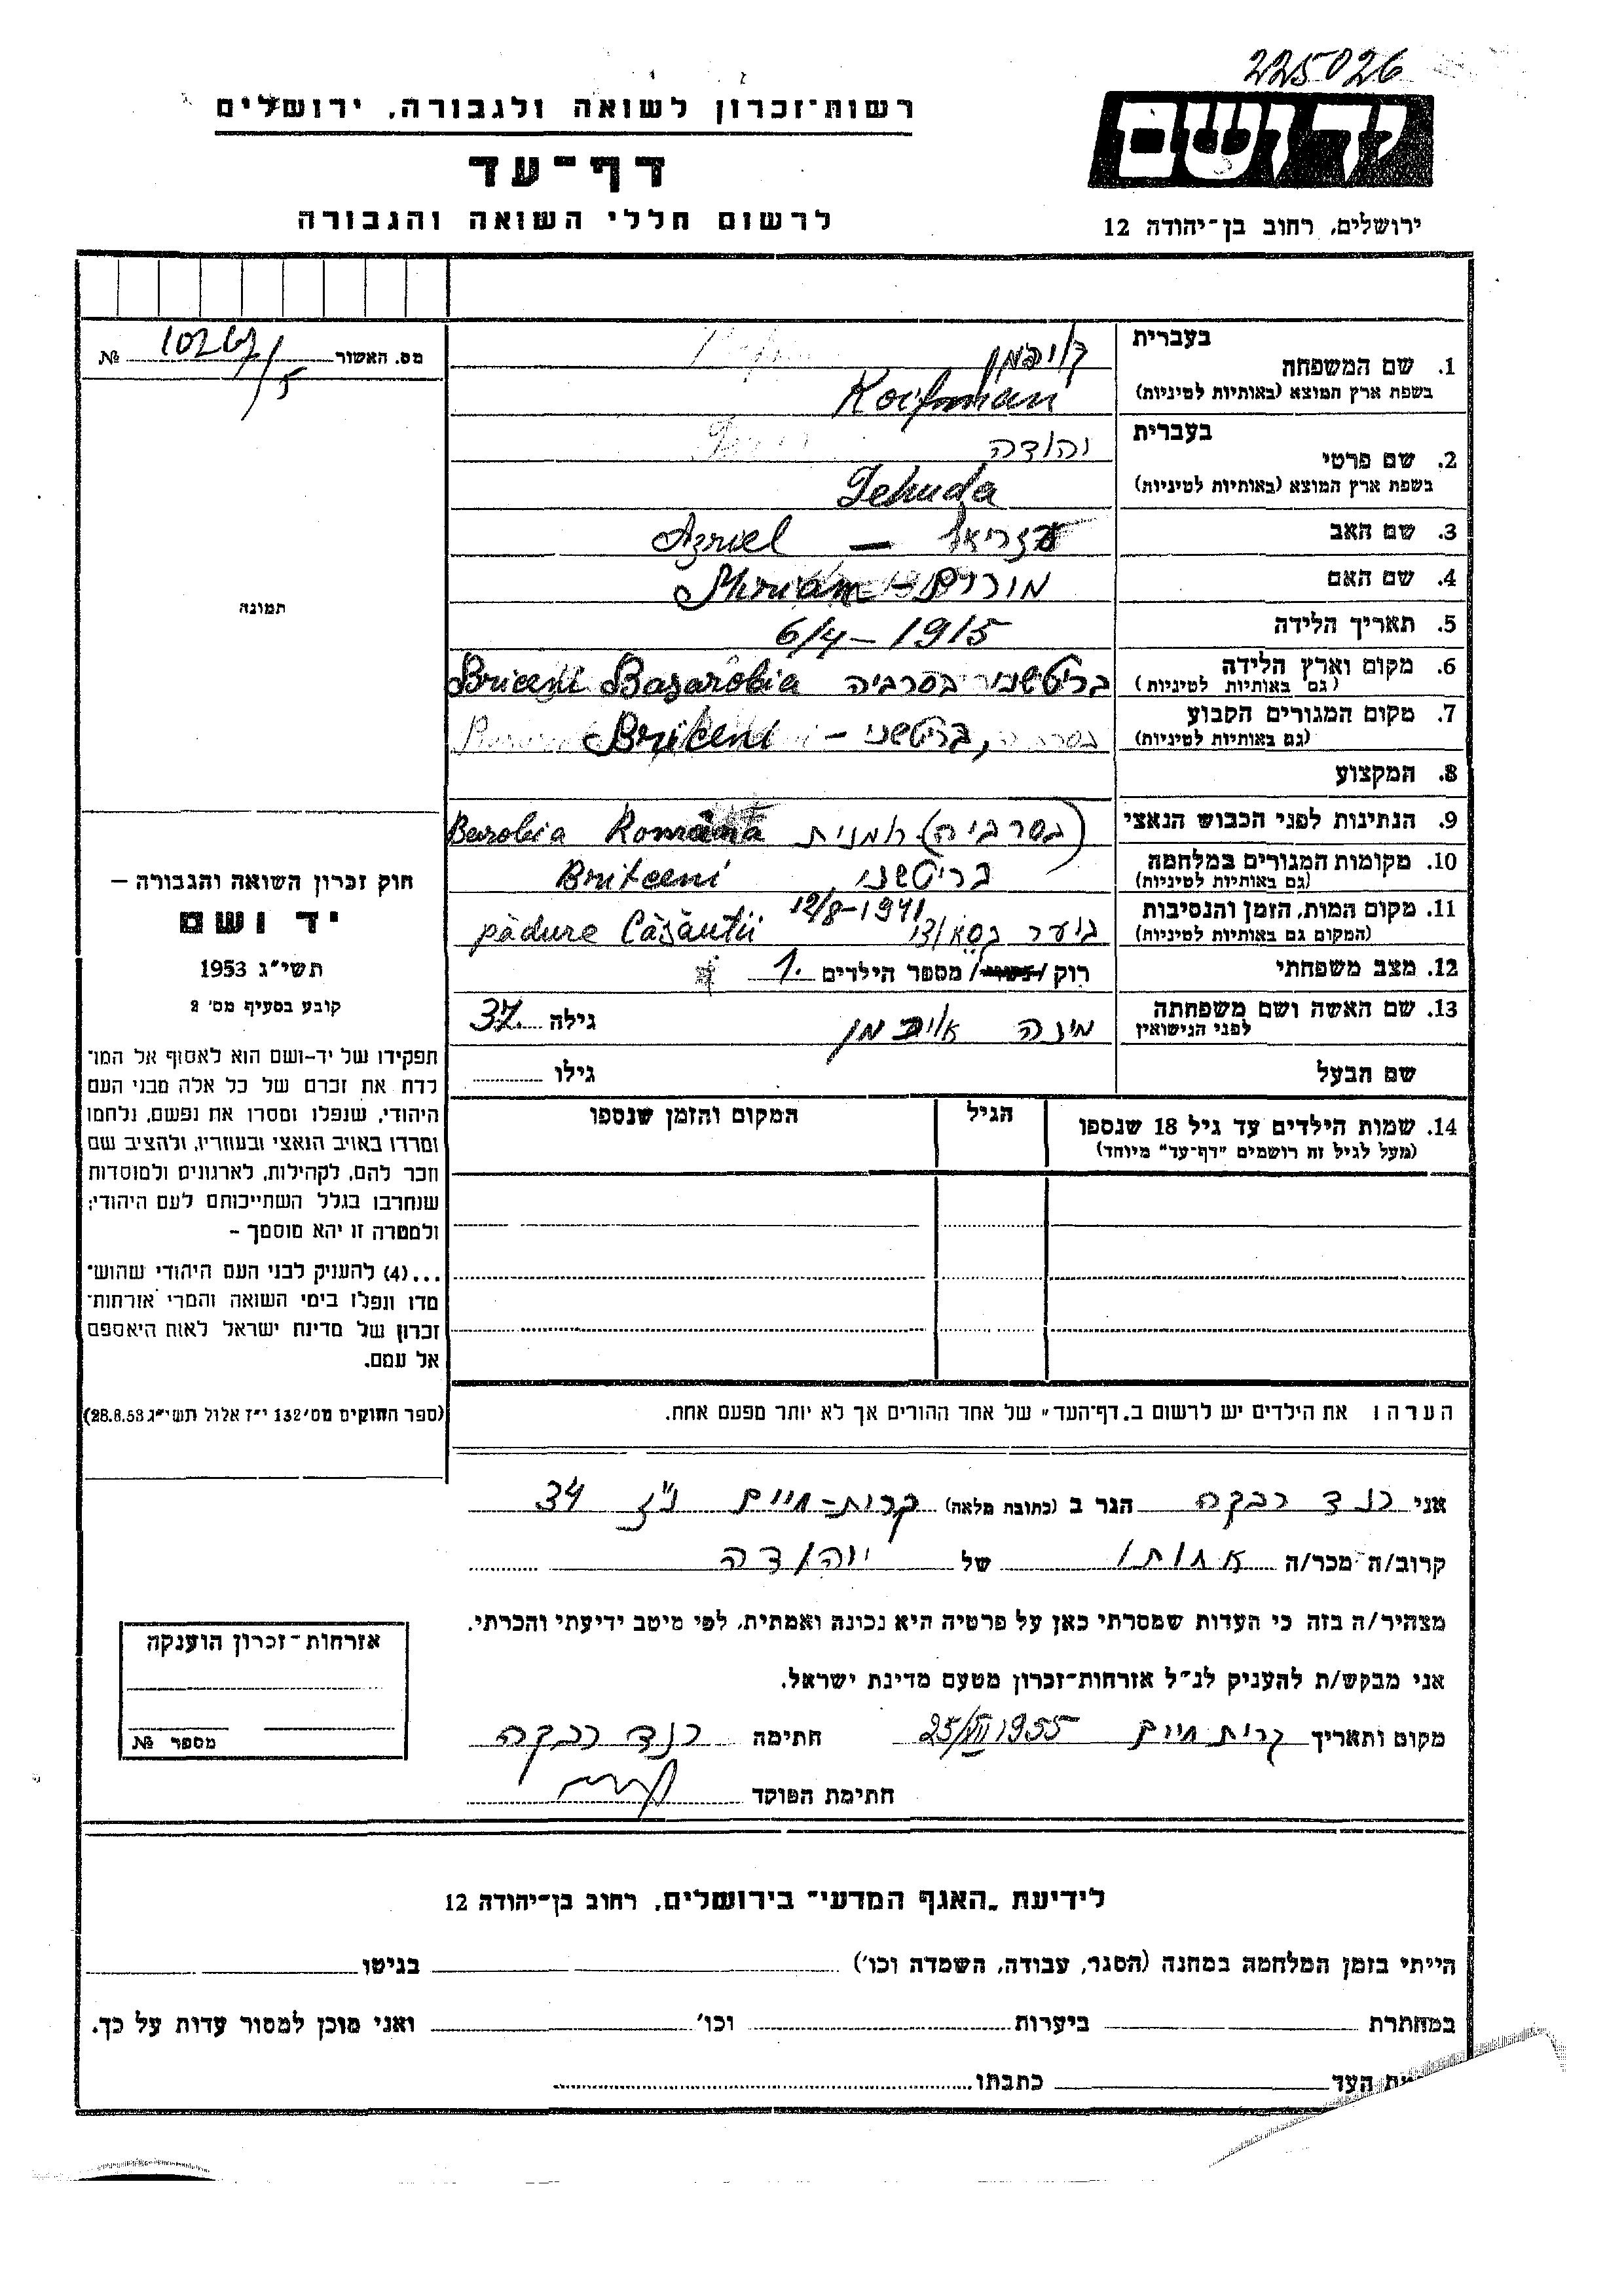 225026
רשות־זכרון לשואה ולגבורה, ירושלים
יד ושם
דף־עד
לרשום חללי השואה והגבורה
ירושלים, רחוב בן־יהודה 12
מס. האשור 10267/5 №
בעברית
1. שם המשפחה קויפמן
בשפת ארץ המוצא (באותיות לטיניות) Koifman
בעברית
2. שם פרטי יהודה
בשפת ארץ המוצא (באותיות לטיניות) Iehuda
3. שם האב עזריאל — Azriel
4. שם האם מירים - Miriam
5. תאריך הלידה 6/4-1915
6. מקום וארץ הלידה בריטשני בסרביה Briceni Basarobia
(גם באותיות לטיניות)
7. מקום המגורים הקבוע בריטשני - Briceni
(גם באותיות לטיניות)
8. המקצוע
9. הנתינות לפני הכבוש הנאצי (בסרביה) רומנית Barobia Româna
10. מקומות המגורים במלחמה בריטשני Britceni
(גם באותיות לטיניות)
11. מקום המות, הזמן והנסיבות ביער 12/8-1941 pădure Căsăutii
(המקום גם באותיות לטיניות)
12. מצב משפחתי רוק/נשוי/ מספר הילדים 1.
13. שם האשה ושם משפחתה מינה גילה 37
לפני הנישואין
שם הבעל גילו
14. שמות הילדים עד גיל 18 שנספו הגיל המקום והזמן שנספו
(מעל לגיל זה רושמים "דף־עד" מיוחד)
תמונה
חוק זכרון השואה והגבורה –
יד ושם
תשי"ג 1953
קובע בסעיף מס' 2
תפקידו של יד-ושם הוא לאסוף אל המו־
לדת את זכרם של כל אלה מבני העם
היהודי, שנפלו ומסרו את נפשם, נלחמו
ומרדו באויב הנאצי ובעוזריו, ולהציב שם
וזכר להם, לקהילות, לארגונים ולמוסדות
שנחרבו בגלל השתייכותם לעם היהודי;
ולמטרה זו יהא מוסמך –
...(4) להעניק לבני העם היהודי שהוש־
מדו ונפלו בימי השואה והמרי אזרחות־
זכרון של מדינת ישראל לאות היאספם
אל עמם.
(ספר החוקים מס' 132 י"ז אלול תשי"ג 28.8.53)
הערה: את הילדים יש לרשום ב„דף־העד" של אחד ההורים אך לא יותר מפעם אחת.
אני רבקה הגר ב (כתובת מלאה) קרית-חיים 34
קרוב/ה מכר/ה אחותו של יהודה
מצהיר/ה בזה כי העדות שמסרתי כאן על פרטיה היא נכונה ואמתית, לפי מיטב ידיעתי והכרתי.
אני מבקש/ת להעניק לנ"ל אזרחות־זכרון מטעם מדינת ישראל.
מקום ותאריך קרית חיים 25/VII 1955 חתימה רבקה
חתימת הפוקד
אזרחות־זכרון הוענקה
מספר №
לידיעת „האגף המדעי" בירושלים, רחוב בן־יהודה 12
הייתי בזמן המלחמה במחנה (הסגר, עבודה, השמדה וכו') בגיטו
במחתרת ביערות וכו' ואני מוכן למסור עדות על כך.
העד כתבתו